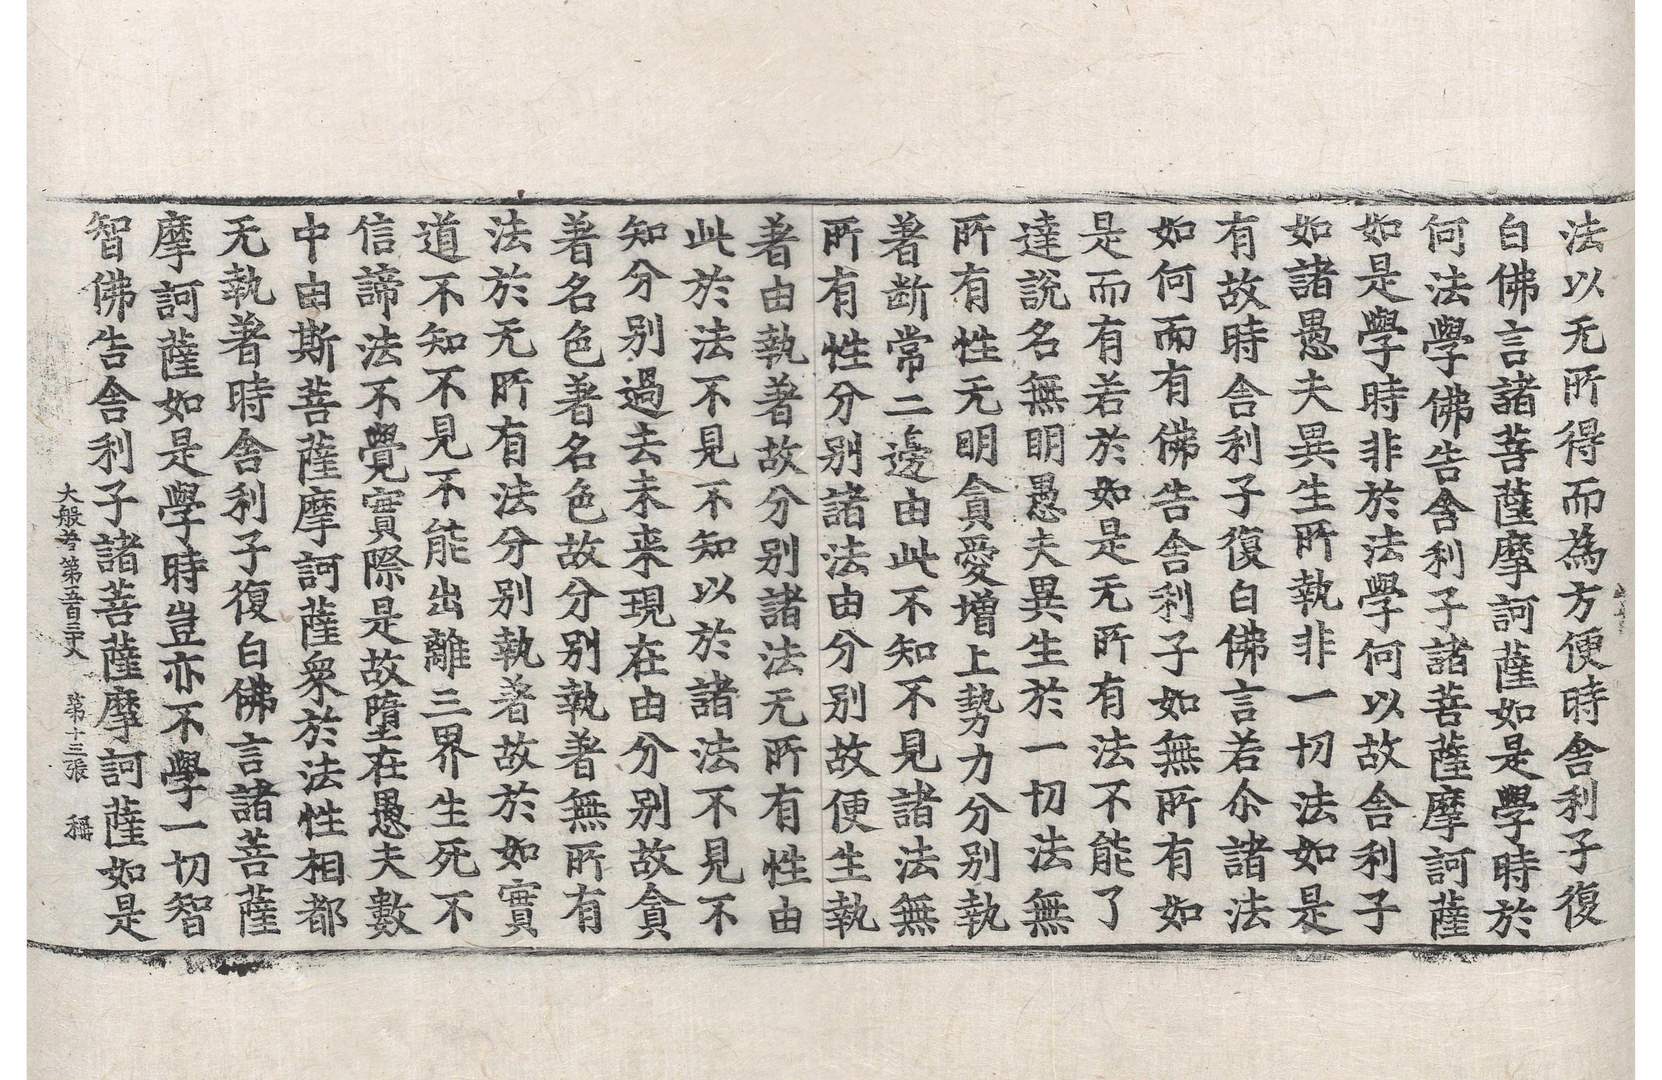 法以无所得而為方便時舍利子復
白佛言諸菩薩摩訶薩如是學時於
何法學佛告舍利子諸菩薩摩訶薩
如是學時非於法學何以故舍利子
如諸愚夫異生所執非一切法如是
有故時舍利子復白佛言若尒諸法
如何而有佛告舍利子如無所有如
是而有若於如是无所有法不能了
達說名無明愚夫異生於一切法無
所有性无明貪愛增上勢力分別執
著断常二邊由此不知不見諸法無
所有性分別諸法由分別故便生執
著由執著故分別諸法无所有性由
此於法不見不知以於諸法不見不
知分別過去未来現在由分別故貪
著名色著名色故分別執著無所有
法於无所有法分別執著故於如實
道不知不見不能出離三界生死不
信諦法不覺實際是故墮在愚夫數
中由斯菩薩摩訶薩衆於法性相都
无執著時舍利子復白佛言諸菩薩
摩訶薩如是學時豈亦不學一切智
智佛告舍利子諸菩薩摩訶薩如是
大般若第五百三十八 第十三張 稱